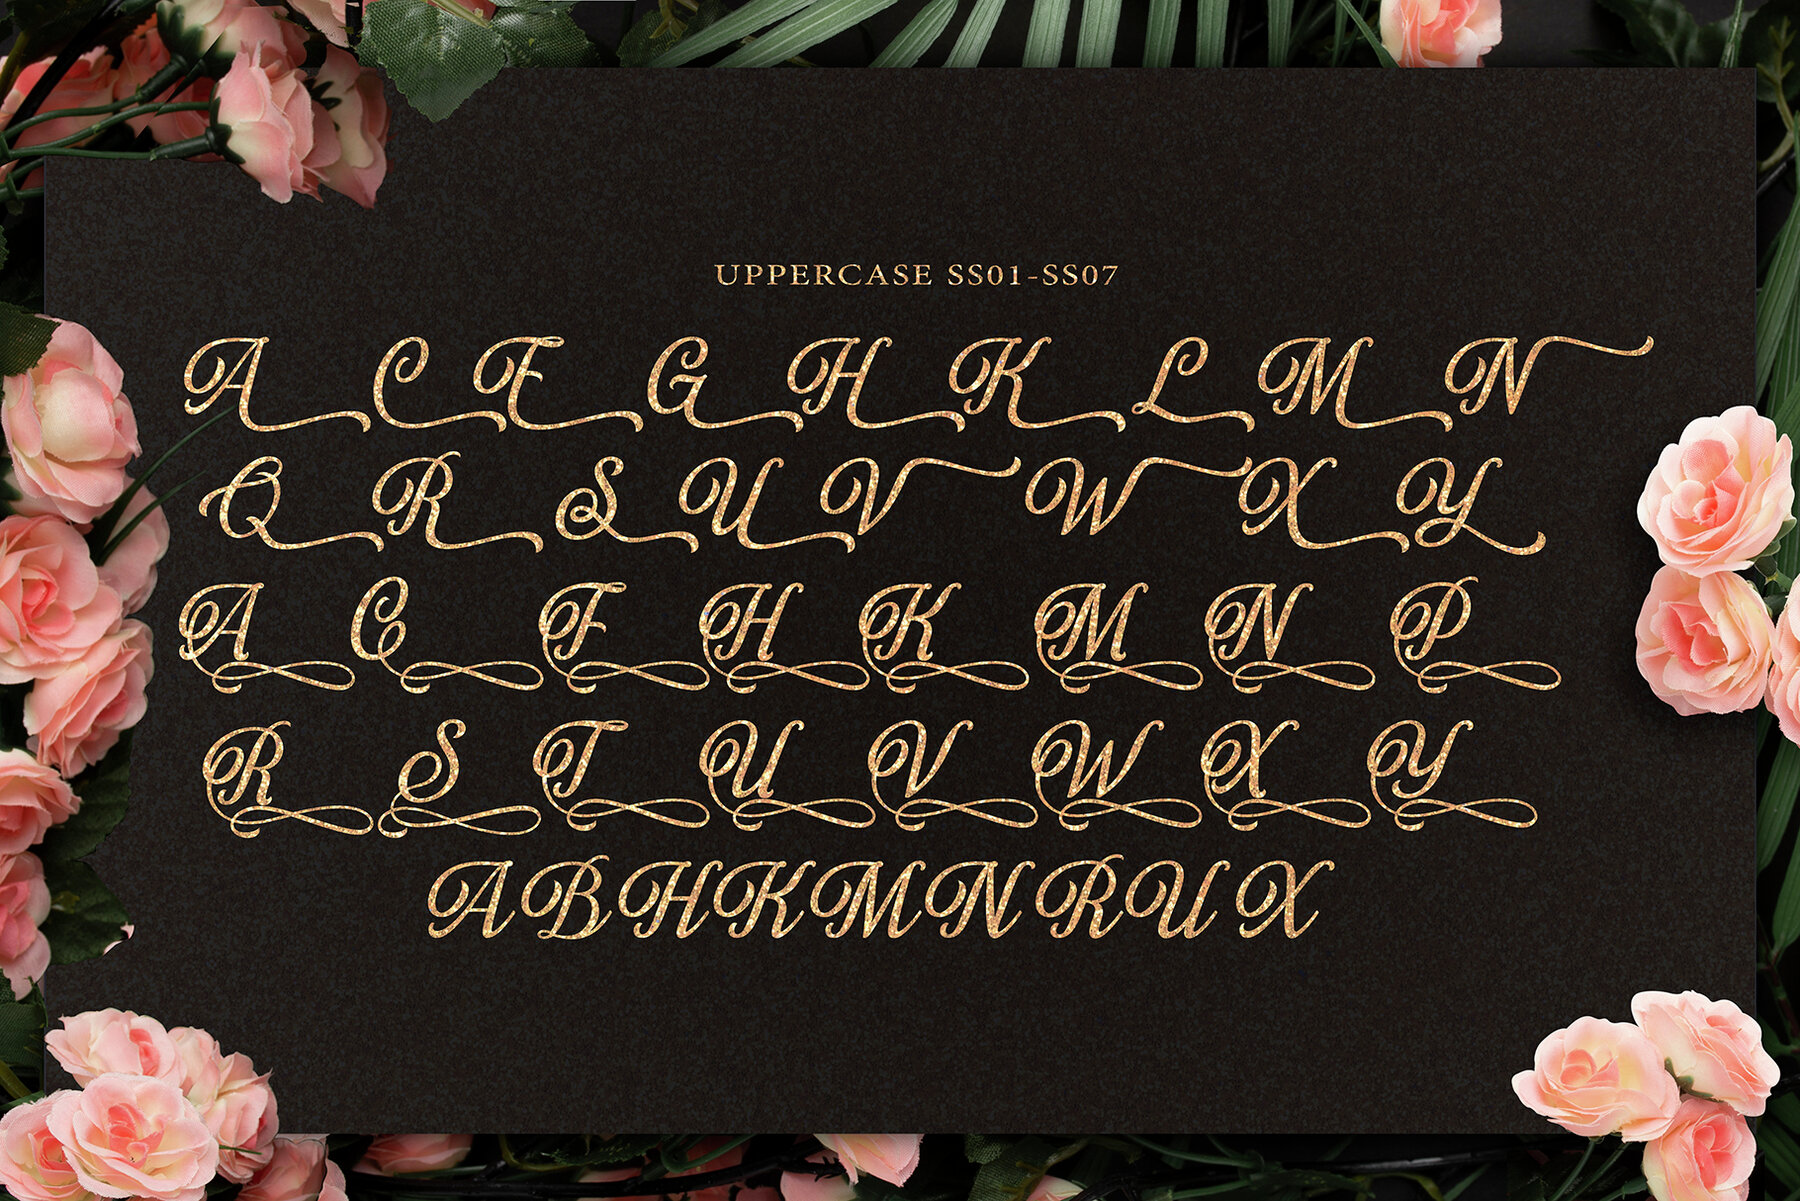 UPPERCASE SS01-SS07
A C E G H K L M N
Q R S U V W X Y
A C F H K M N P
R S T U V W X Y
A B H K M N R U X